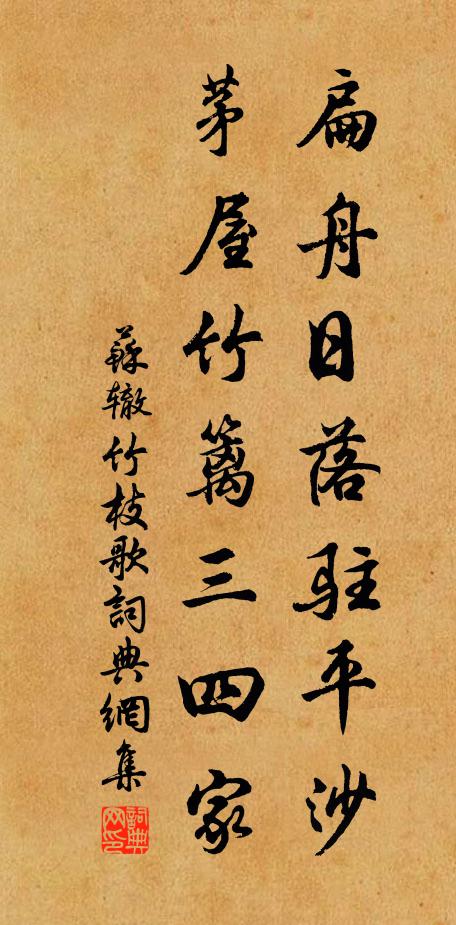 扁舟日落駐平沙
茅屋竹籬三四家
蘇轍竹枝歌詞典網集
詞典网印